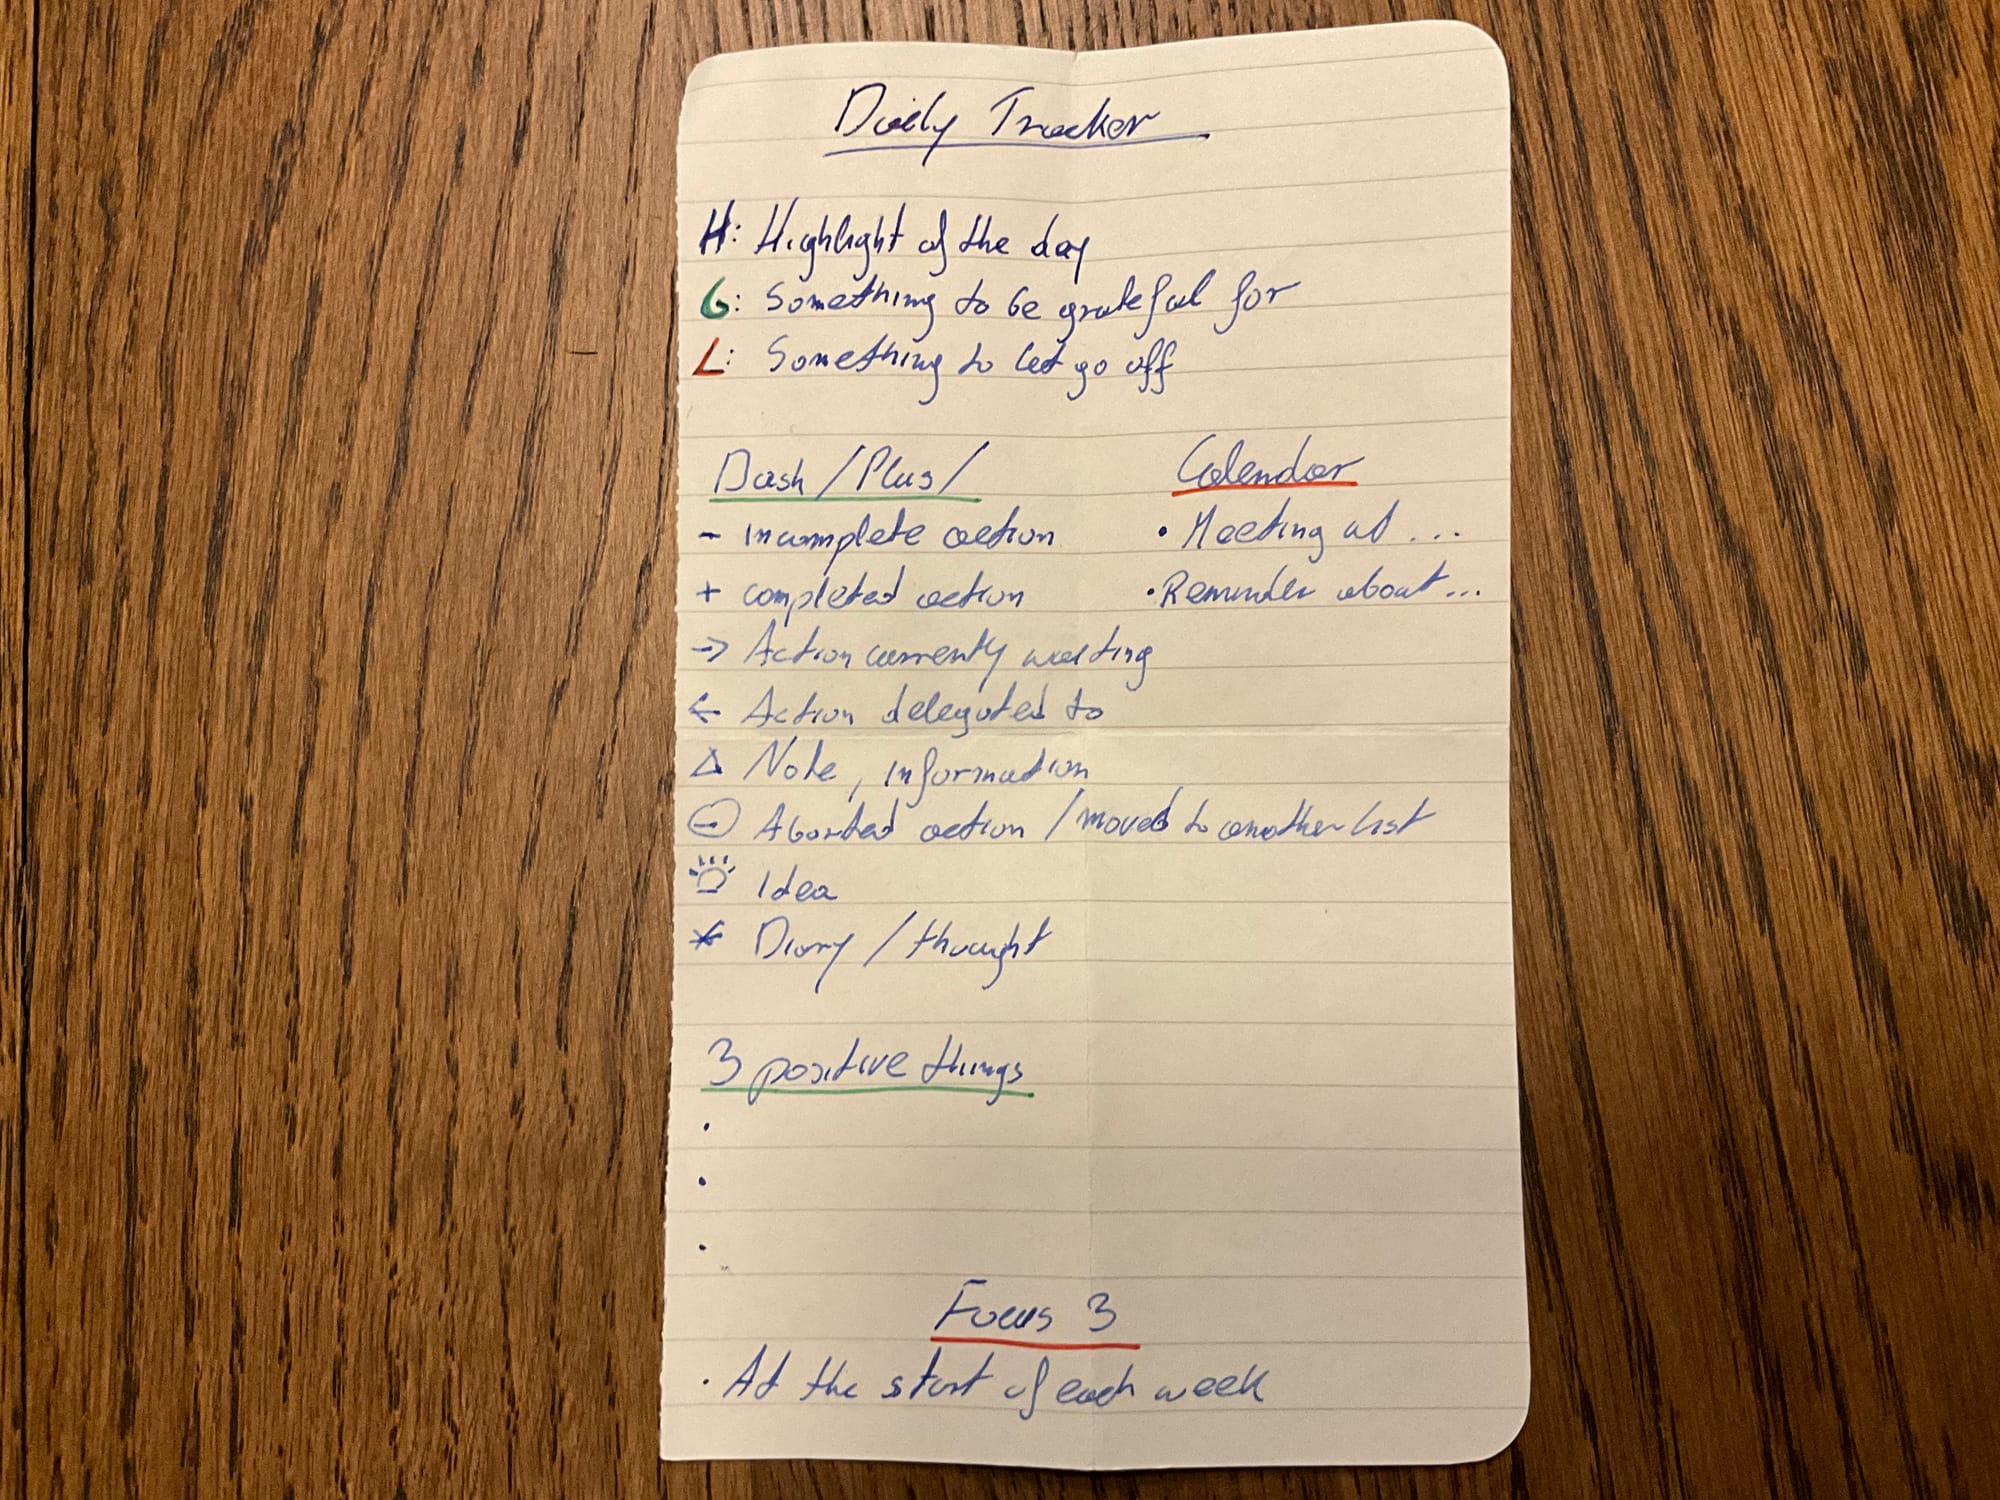 Daily Tracker
H: Highlight of the day
G: Something to be grateful for
L: Something to let go off
Dash/Plus/
- Incomplete action
+ completed action
→ Action currently waiting
← Action delegated to
△ Note, information
⊖ Aborted action / moved to another list
Idea
* Diary / thought
Calendar
• Meeting at ...
• Reminder about ...
3 positive things
•
•
•
Focus 3
• At the start of each week